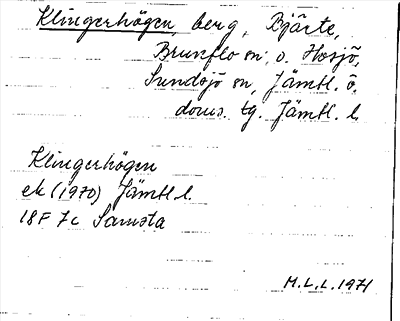 Klingerhögen, berg, Bjärte,
Brunflo sn, o. Hosjö,
Sundsjö sn, Jämtl. ö.
doms. tg. Jämtl. l.
Klingerhögen
ek (1970) Jämtl l.
18F 7c Samsta
M.L.L. 1971